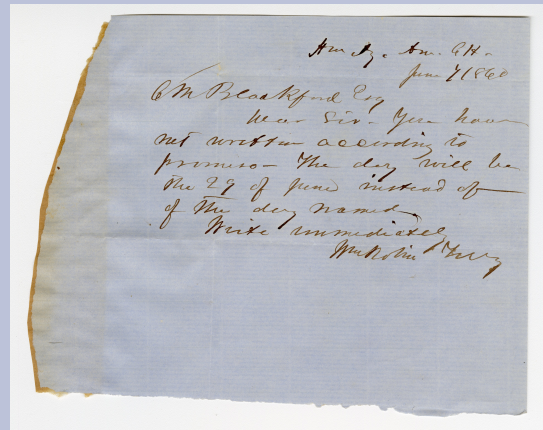 June 7 1860
C M Blackford Esq
Dear Sir. You have
not written according to
promise – The day will be
the 29 of June instead of
of the day named.
Write immediately
Wm